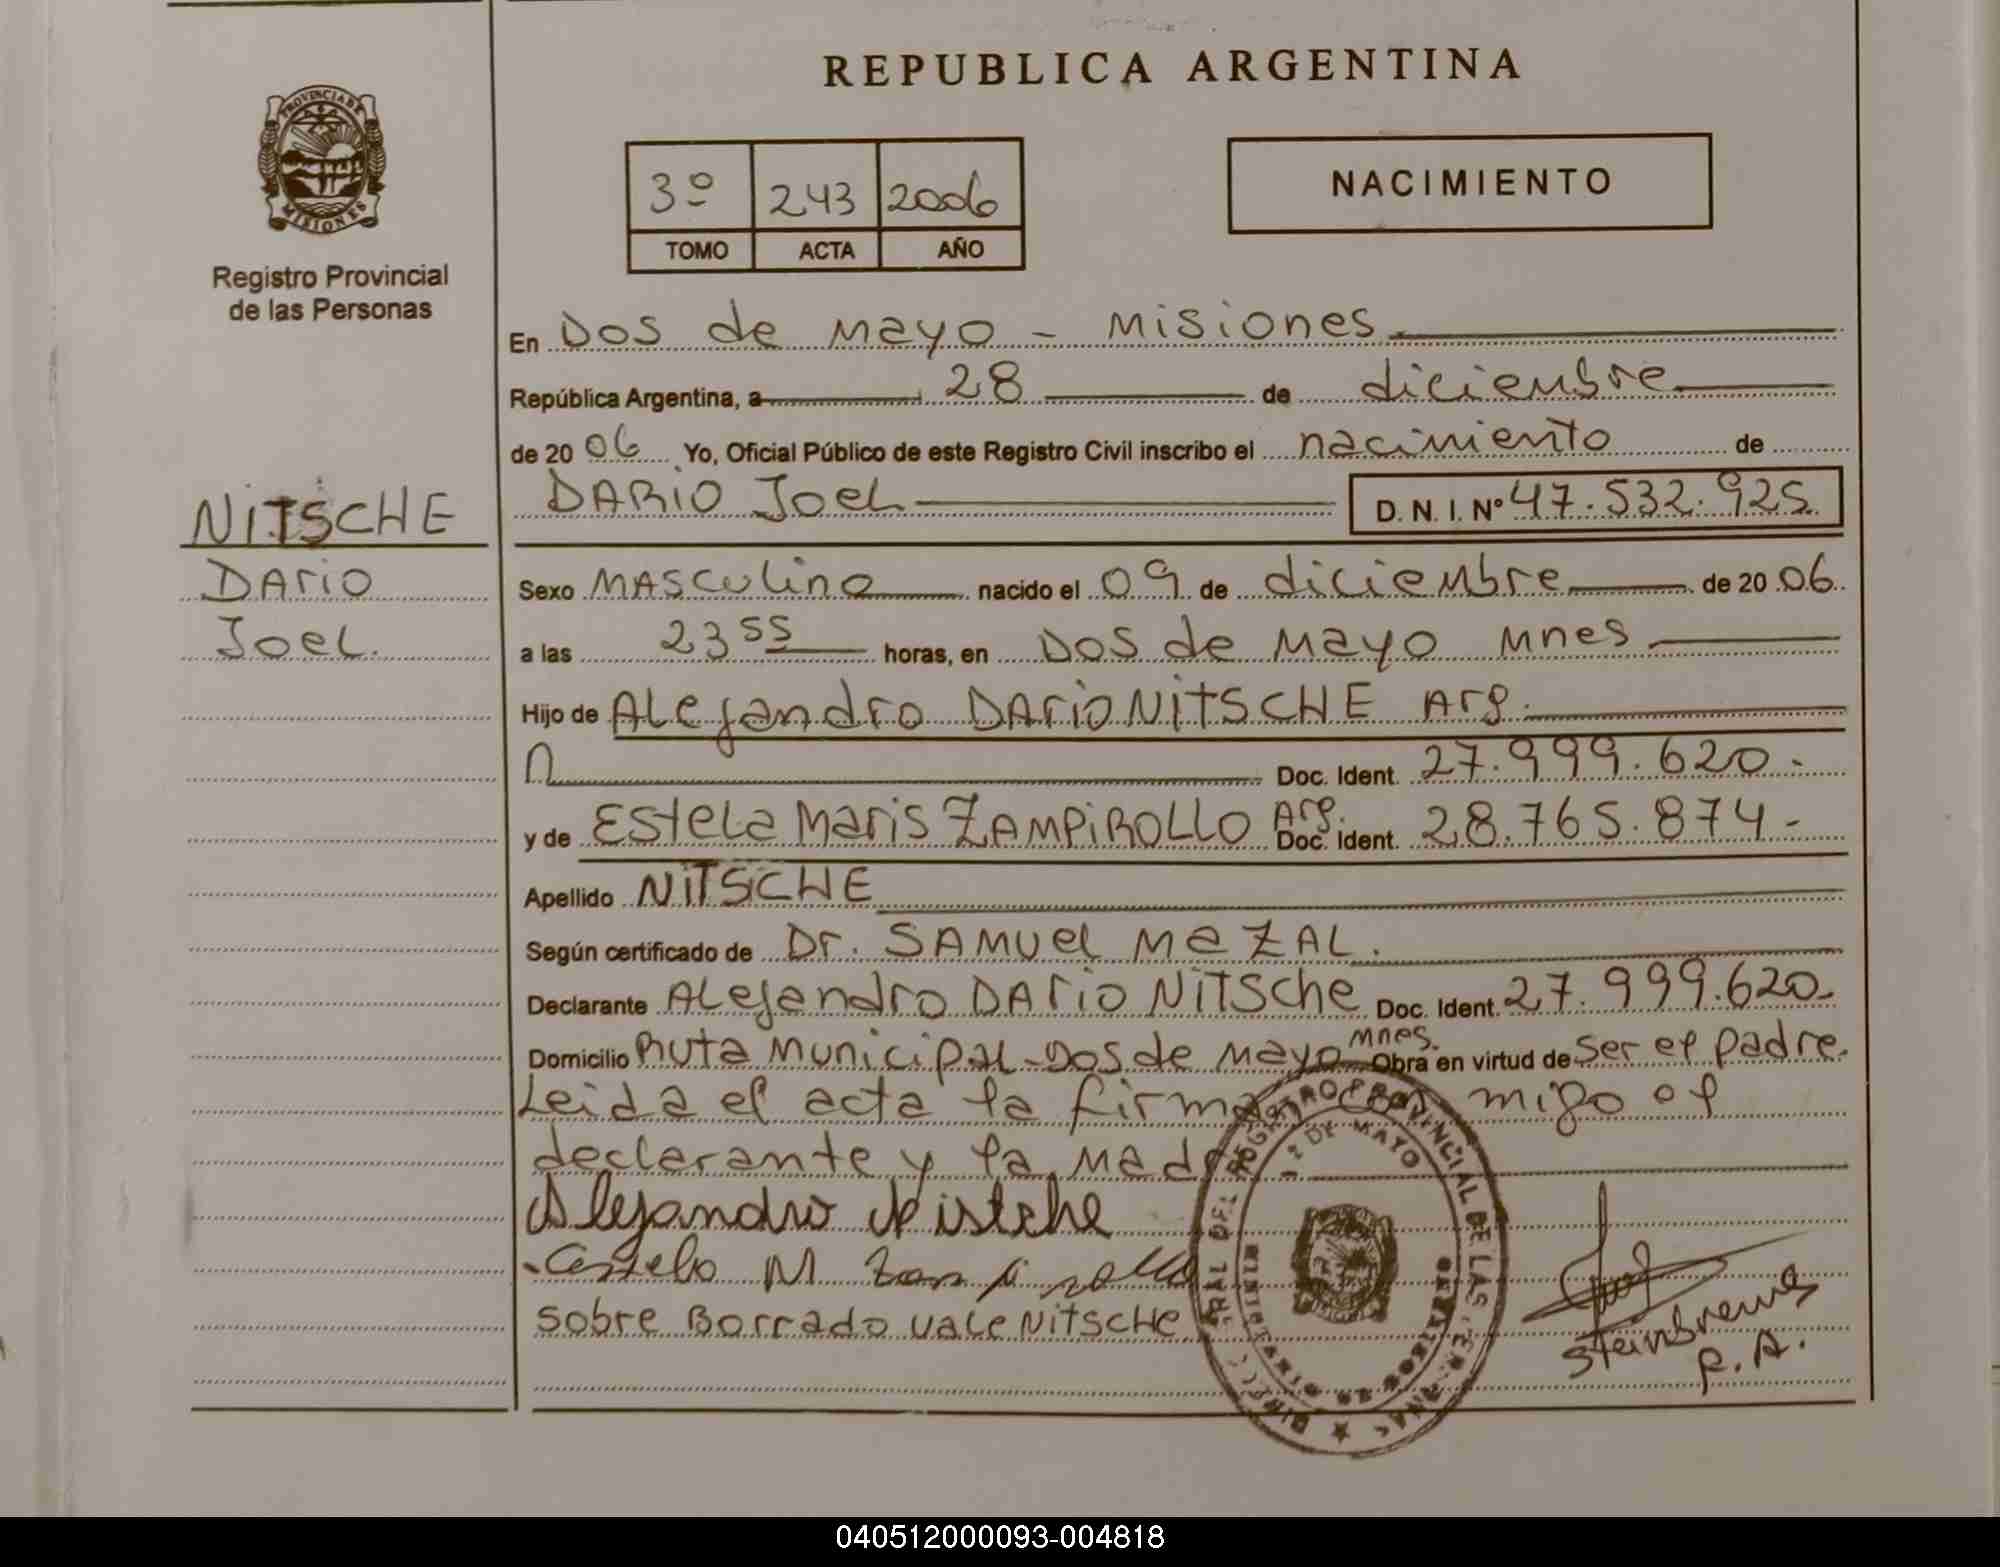 REPUBLICA ARGENTINA
PROVINCIA DE
MISIONES
Registro Provincial
de las Personas
3º 243 2006
TOMO ACTA AÑO
NACIMIENTO
En Dos de mayo - Misiones
República Argentina, a 28 de diciembre
de 20 06 Yo, Oficial Público de este Registro Civil inscribo el nacimiento de
DARIO Joel D. N. I. Nº 47.532.925
NITSCHE
Dario
Joel.
Sexo MAsculino nacido el 09 de diciembre de 20 06
a las 23 55 horas, en Dos de Mayo Mnes
Hijo de Alejandro DArio NITSCHE Arg.
Doc. Ident. 27.999.620.-
y de Estela Maris ZAMPIROLLO Arg. Doc. Ident. 28.765.874-
Apellido NITSCHE
Según certificado de Dr. SAMUel MaZAL.
Declarante Alejandro DArio NiTSche Doc. Ident. 27.999.620-
Domicilio Ruta Municipal-Dos de Mayo Mnes. Obra en virtud de ser el padre.
Leida el acta la firma con migo el
declarante y la Madre
Alejandro Nistche
Estela M Zampirollo
sobre Borrado vale NitscHe
Steinbrenner
P.A.
040512000093-004818